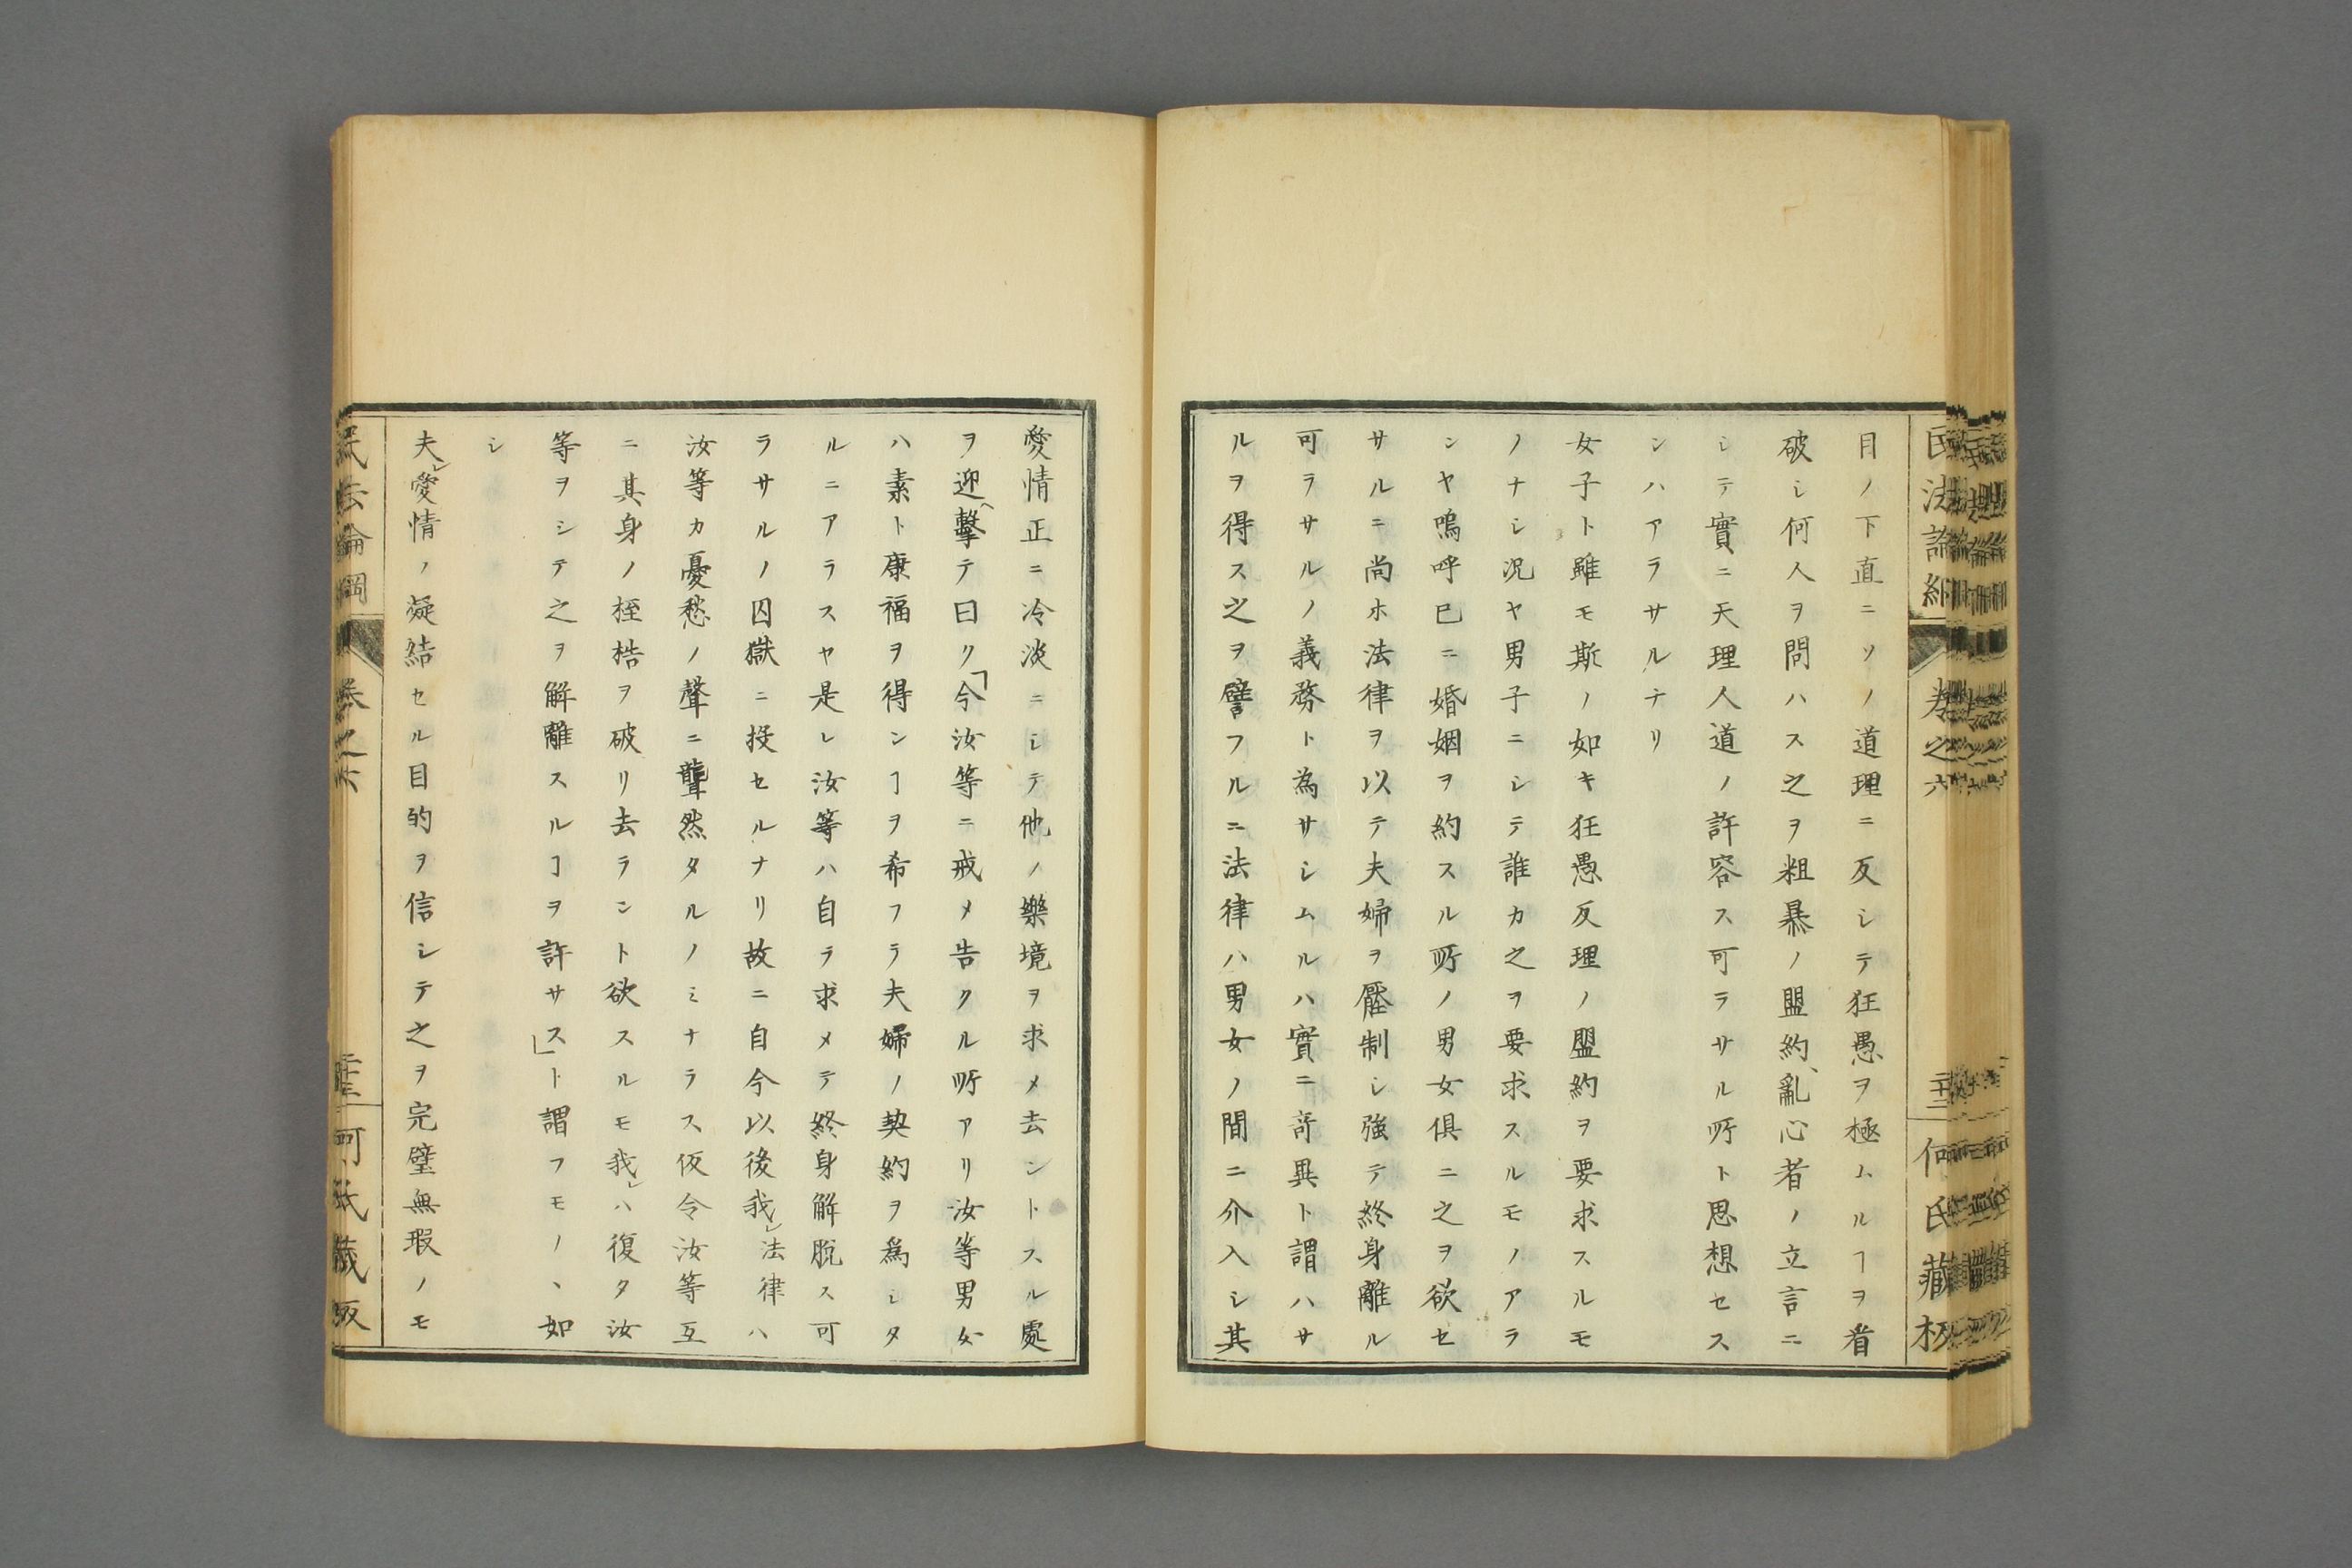 民法論綱 卷之六 二十二 何氏藏板
目ノ下直ニソノ道理ニ反シテ狂愚ヲ極ムルヿヲ看
破シ何人ヲ問ハス之ヲ粗暴ノ盟約、亂心者ノ立言ニ
シテ實ニ天理人道ノ許容ス可ラサル所ト思想セス
ンハアラサルナリ
女子ト雖モ斯ノ如キ狂愚反理ノ盟約ヲ要求スルモ
ノナシ况ヤ男子ニシテ誰カ之ヲ要求スルモノアラ
ンヤ嗚呼已ニ婚姻ヲ約スル所ノ男女俱ニ之ヲ欲セ
サルニ尚ホ法律ヲ以テ夫婦ヲ壓制シ強テ終身離ル
可ラサルノ義務ト為サシムルハ實ニ竒異ト謂ハサ
ルヲ得ス之ヲ譬フルニ法律ハ男女ノ間ニ介入シ其
愛情正ニ冷淡ニシテ他ノ樂境ヲ求メ去ントスル處
ヲ迎ヘ擊テ曰ク「今汝等ニ戒メ告クル所アリ汝等男女
ハ素ト康福ヲ得ンヿヲ希フラ夫婦ノ契約ヲ爲シタ
ルニアラスヤ是レ汝等ハ自ラ求メテ終身解脫ス可
ラサルノ囚獄ニ投セルナリ故ニ自今以後我レ法律ハ
汝等カ憂愁ノ聲ニ聾然タルノミナラス仮令汝等互
ニ其身ノ桎梏ヲ破リ去ラント欲スルモ我レハ復タ汝
等ヲシテ之ヲ解離スルヿヲ許サス」ト謂フモノヽ如
シ
夫レ愛情ノ凝結セル目的ヲ信シテ之ヲ完璧無瑕ノモ
民法論綱 卷之六 二十三 何氏藏版